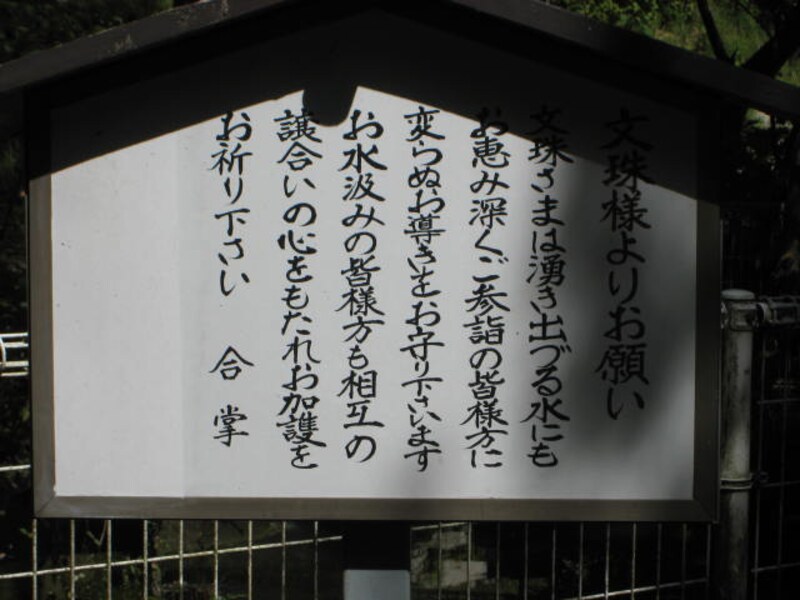 文珠様よりお願い
文珠さまは湧き出づる水にも
お恵み深くご参詣の皆様方に
変らぬお導きをお守り下さいます
お水汲みの皆様方も相互の
譲合いの心をもたれお加護を
お祈り下さい　合掌